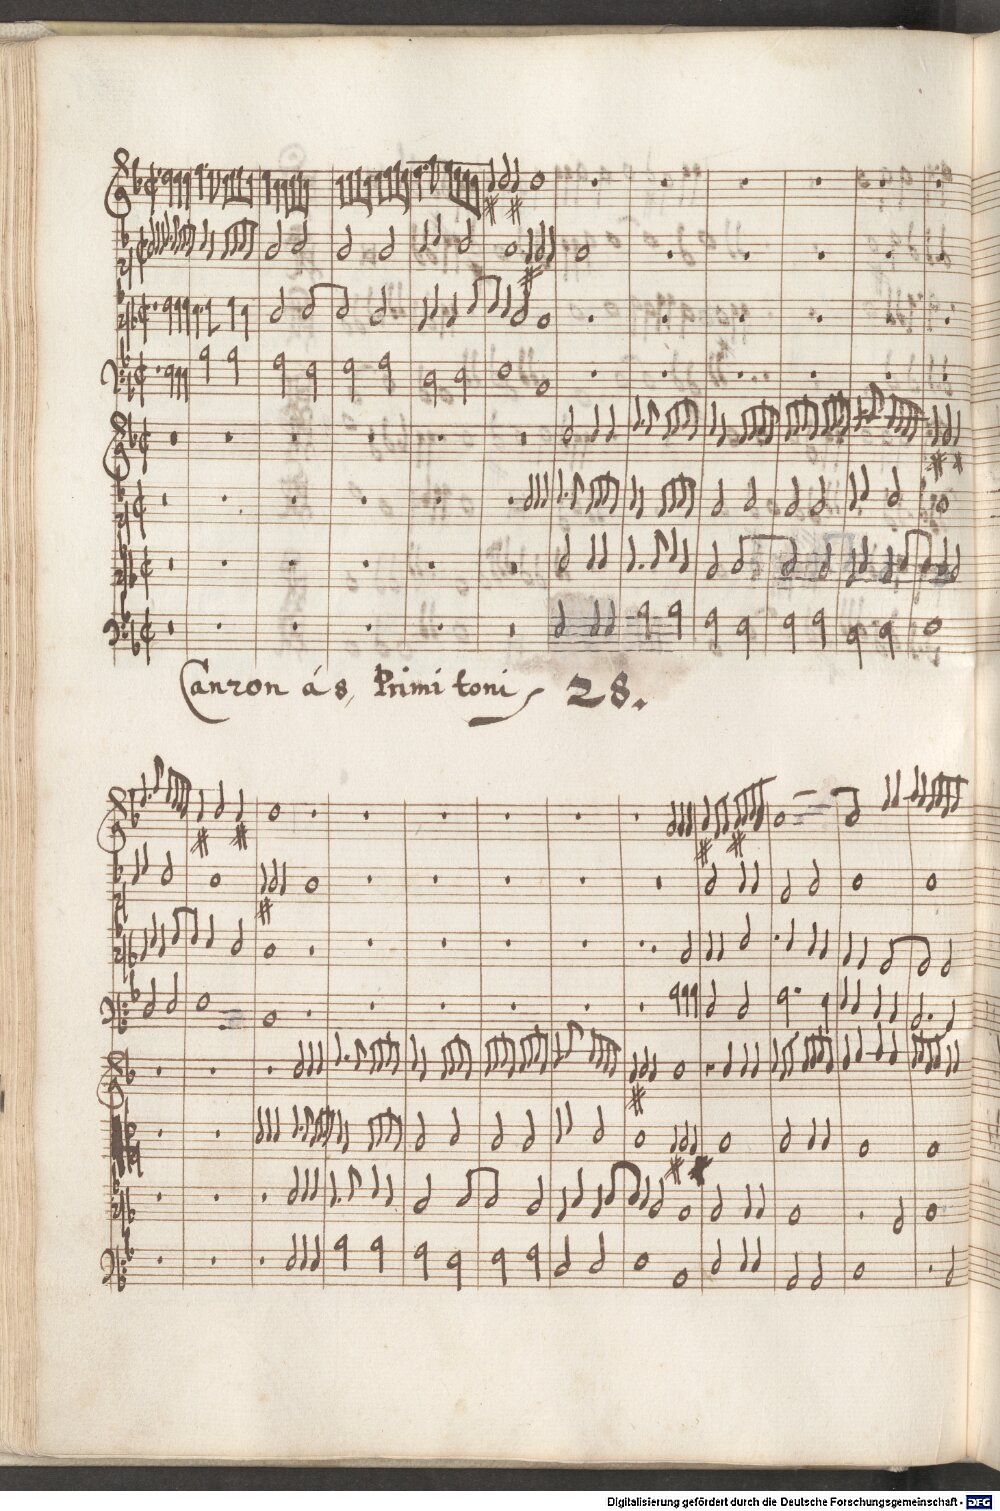 Canzon á 8, Primi toni 28.
Digitalisierung gefördert durch die Deutsche Forschungsgemeinschaft - DFG